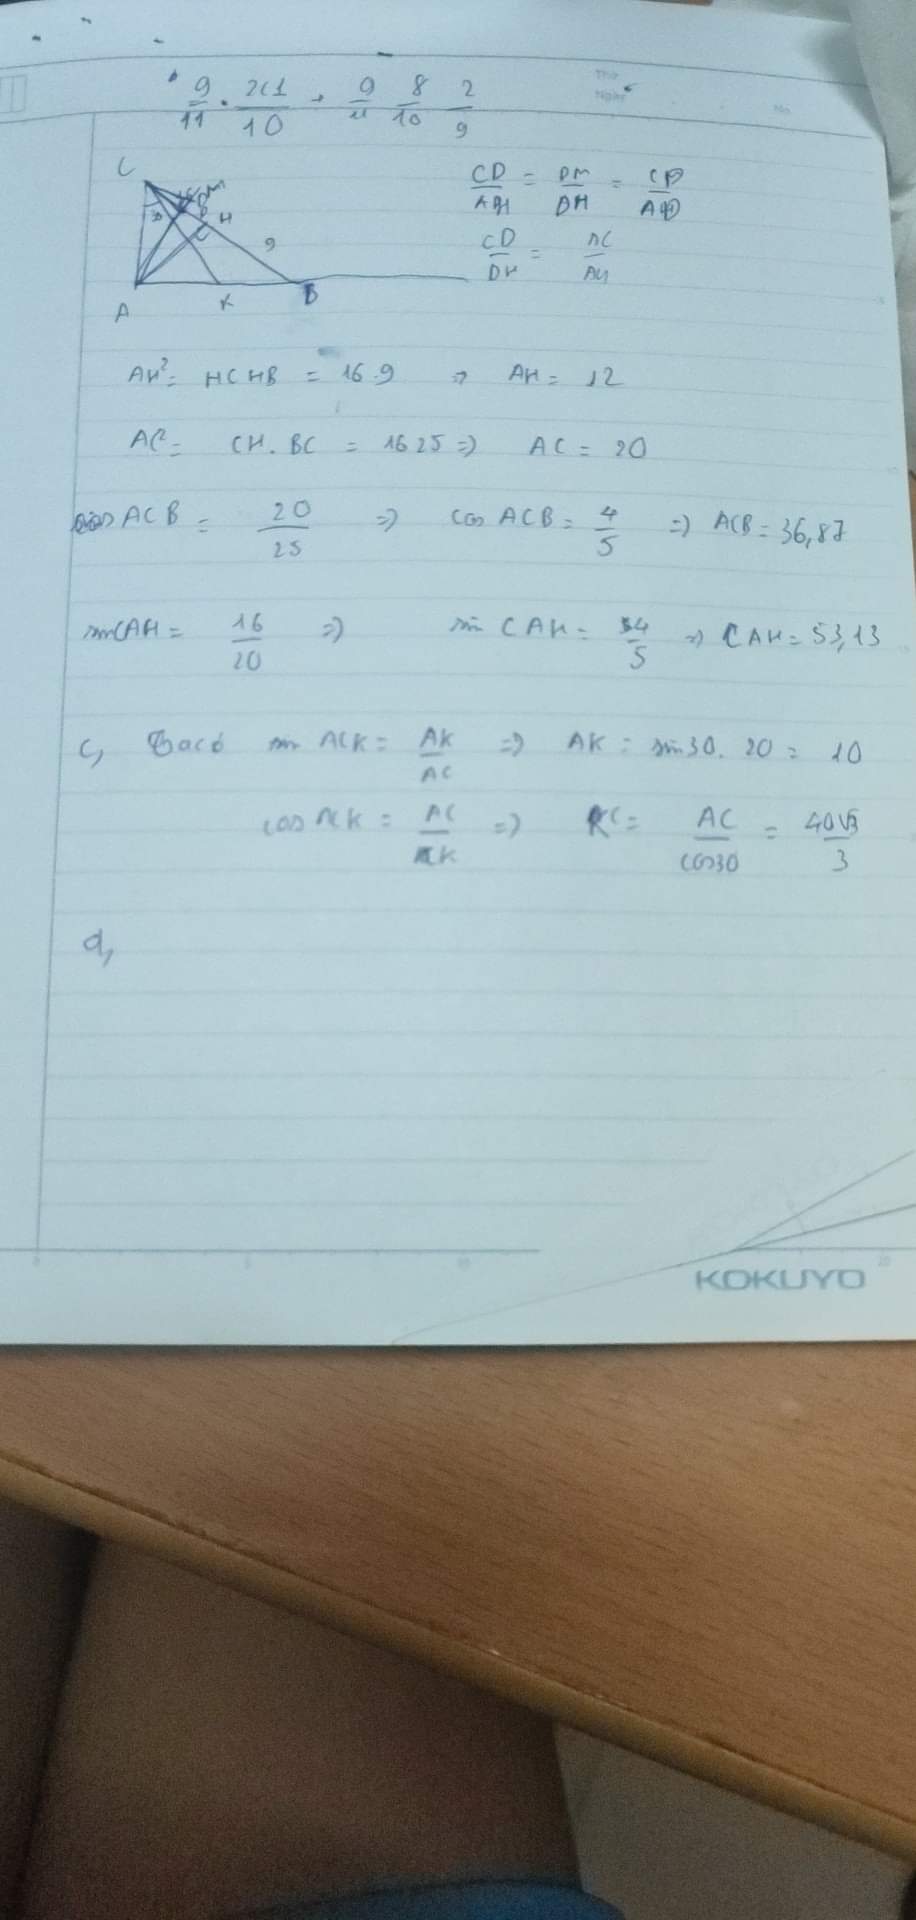 9/11 · 2(1/10 → 9/11 8/10 2/9
Thứ
Ngày
No.
C
H
9
A K B
CD/AH = DM/DH = CD/AD
CD/DH = AC/AH
AH² = HC HB = 16.9 => AH = 12
AC² = CH. BC = 16 25 => AC = 20
cos ACB = 20/25 => cos ACB = 4/5 => ACB = 36,87
sin CAH = 16/20 => sin CAH = 4/5 => CAH = 53,13
c, Ta có sin ACK = AK/AC => AK = sin30. 20 = 10
cos ACK = AC/CK => KC = AC/cos30 = 40√3/3
d,
KOKUYO